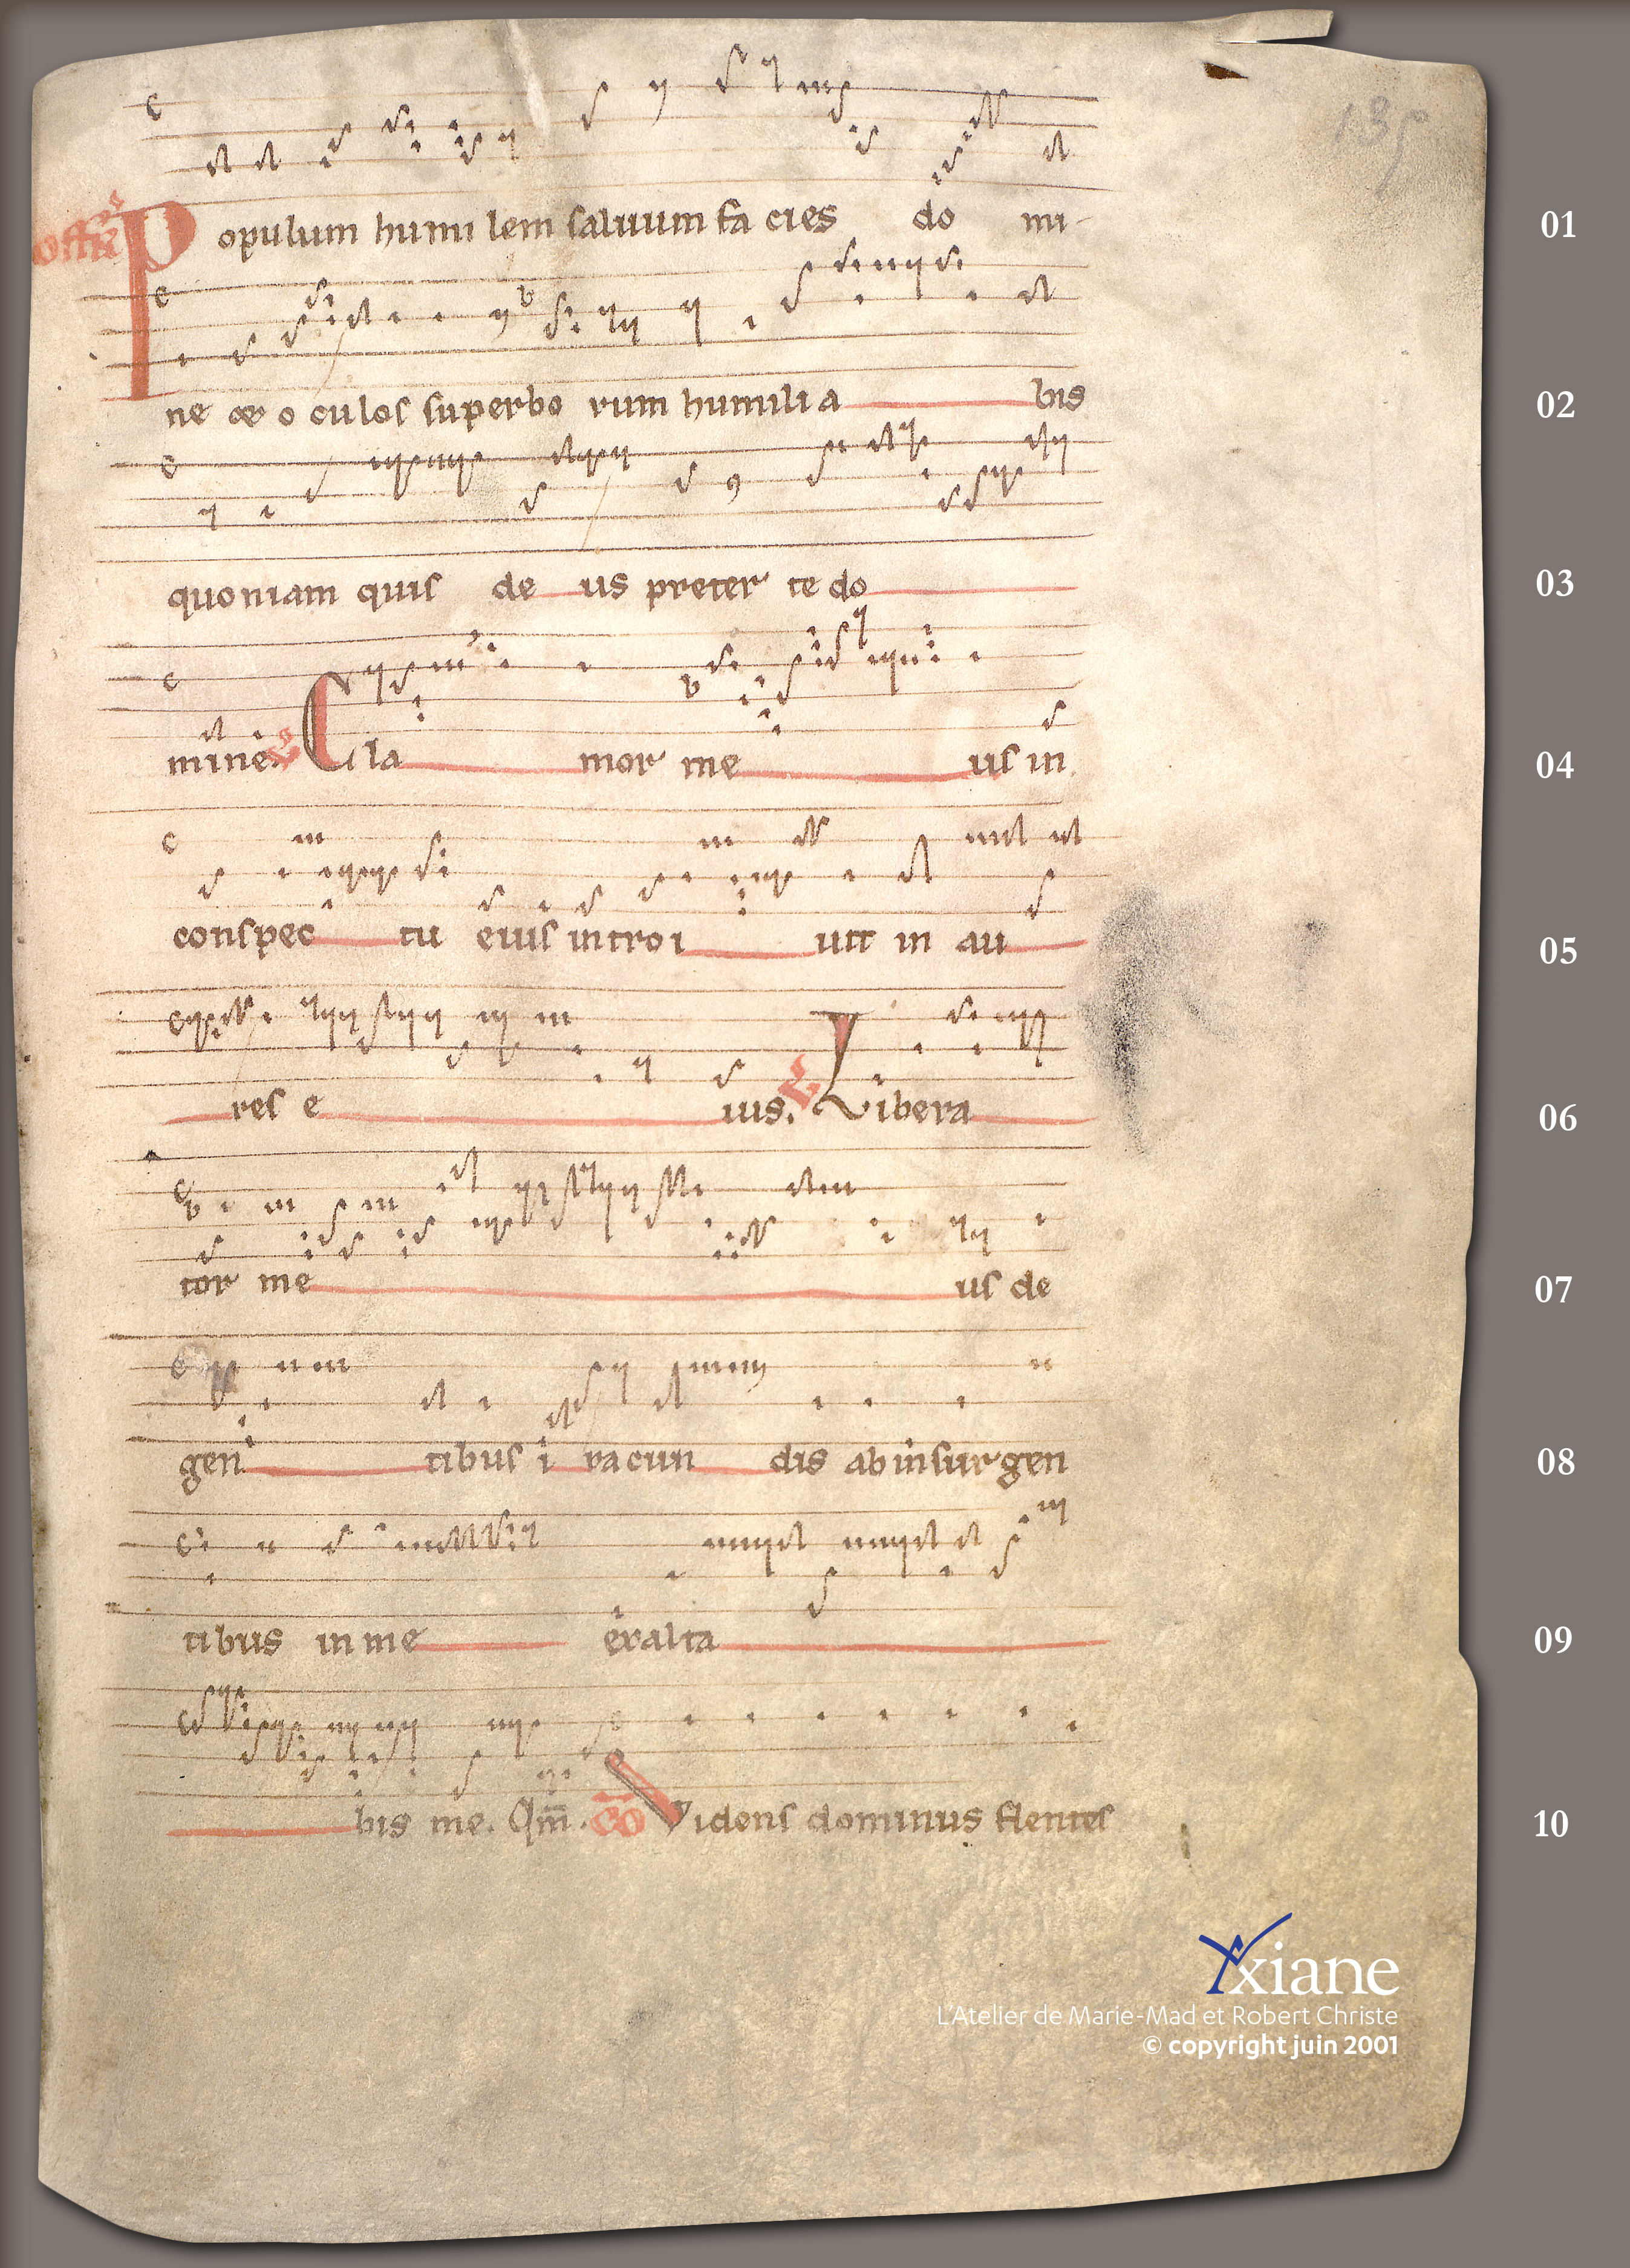 135
Offr̄
Populum humi lem saluum fa cies do mi-
01
ne & o culos superbo rum humili a bis
02
quoniam quis de us preter te do
03
mine. V Cla mor me us in
04
conspec tu eius introi uit in au
05
res e ius. V Libera
06
tor me us de
07
gen tibus i racun dis ab insurgen
08
tibus in me exalta
09
bis me. Qm̄. CŌ Videns dominus flentes
10
Axiane
L'Atelier de Marie-Mad et Robert Christe
© copyright juin 2001